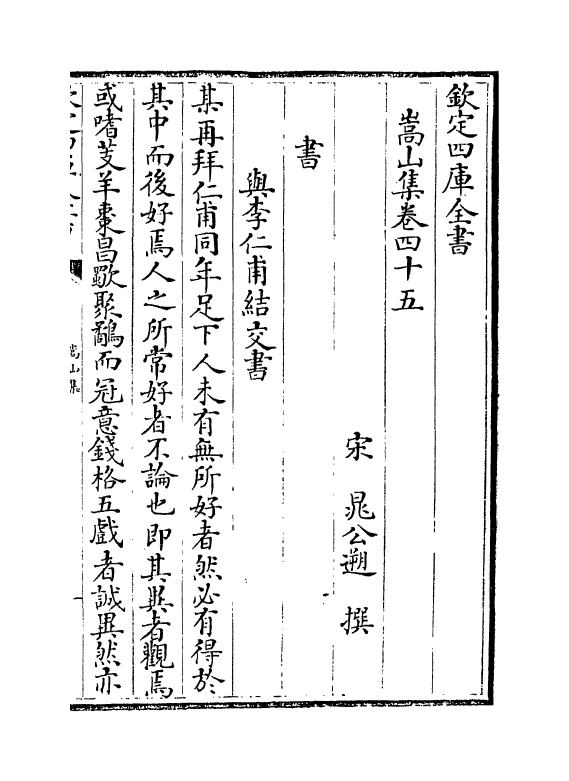 欽定四庫全書
嵩山集卷四十五
宋　晁公遡　撰
書
與李仁甫結交書
某再拜仁甫同年足下人未有無所好者然必有得於
其中而後好焉人之所常好者不論也即其異者觀焉
或嗜芰羊棗昌歜聚鷸而冠意錢格五戲者誠異然亦
嵩山集